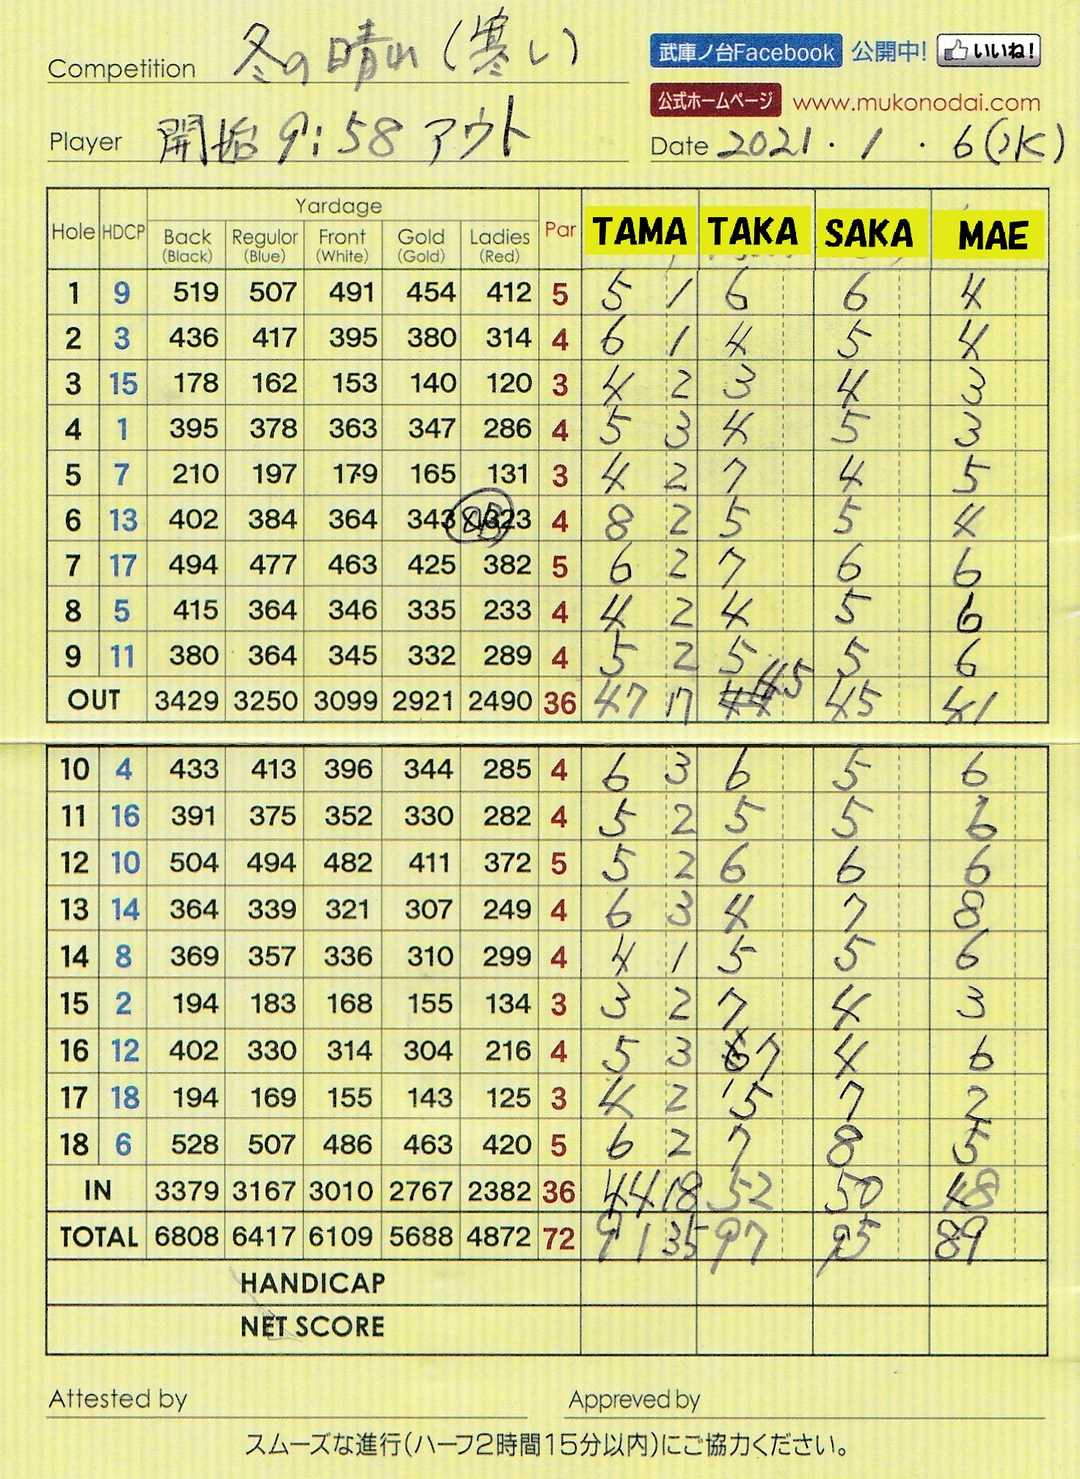 Competition 冬の晴れ(寒い)
武庫ノ台Facebook 公開中! いいね!
公式ホームページ www.mukonodai.com
Player 開始 9:58 アウト
Date 2021・1・6(水)
Yardage
Hole HDCP Back (Black) Regulor (Blue) Front (White) Gold (Gold) Ladies (Red) Par TAMA TAKA SAKA MAE
1 9 519 507 491 454 412 5 5 1 6 6 4
2 3 436 417 395 380 314 4 6 1 4 5 4
3 15 178 162 153 140 120 3 4 2 3 4 3
4 1 395 378 363 347 286 4 5 3 4 5 3
5 7 210 197 179 165 131 3 4 2 7 4 5
6 13 402 384 364 343 323 4 8 2 5 5 4
7 17 494 477 463 425 382 5 6 2 7 6 6
8 5 415 364 346 335 233 4 4 2 4 5 6
9 11 380 364 345 332 289 4 5 2 5 5 6
OUT 3429 3250 3099 2921 2490 36 47 17 44 45 45 41
10 4 433 413 396 344 285 4 6 3 6 5 6
11 16 391 375 352 330 282 4 5 2 5 5 6
12 10 504 494 482 411 372 5 5 2 6 6 6
13 14 364 339 321 307 249 4 6 3 4 7 8
14 8 369 357 336 310 299 4 4 1 5 5 6
15 2 194 183 168 155 134 3 3 2 7 4 3
16 12 402 330 314 304 216 4 5 3 6 7 4 6
17 18 194 169 155 143 125 3 4 2 5 7 2
18 6 528 507 486 463 420 5 6 2 7 8 5
IN 3379 3167 3010 2767 2382 36 44 18 52 50 48
TOTAL 6808 6417 6109 5688 4872 72 91 35 97 95 89
HANDICAP
NET SCORE
Attested by
Appreved by
スムーズな進行(ハーフ2時間15分以内)にご協力ください。